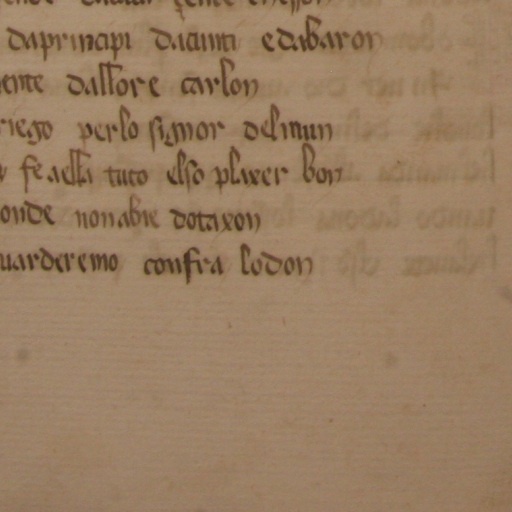 daprincipi dacunti edabaron
ente dallore carlon
riego perlo signor delmun
fe aella tuto elso plaxer bon
onde non abie dotaxon
uarderemo confra lodon